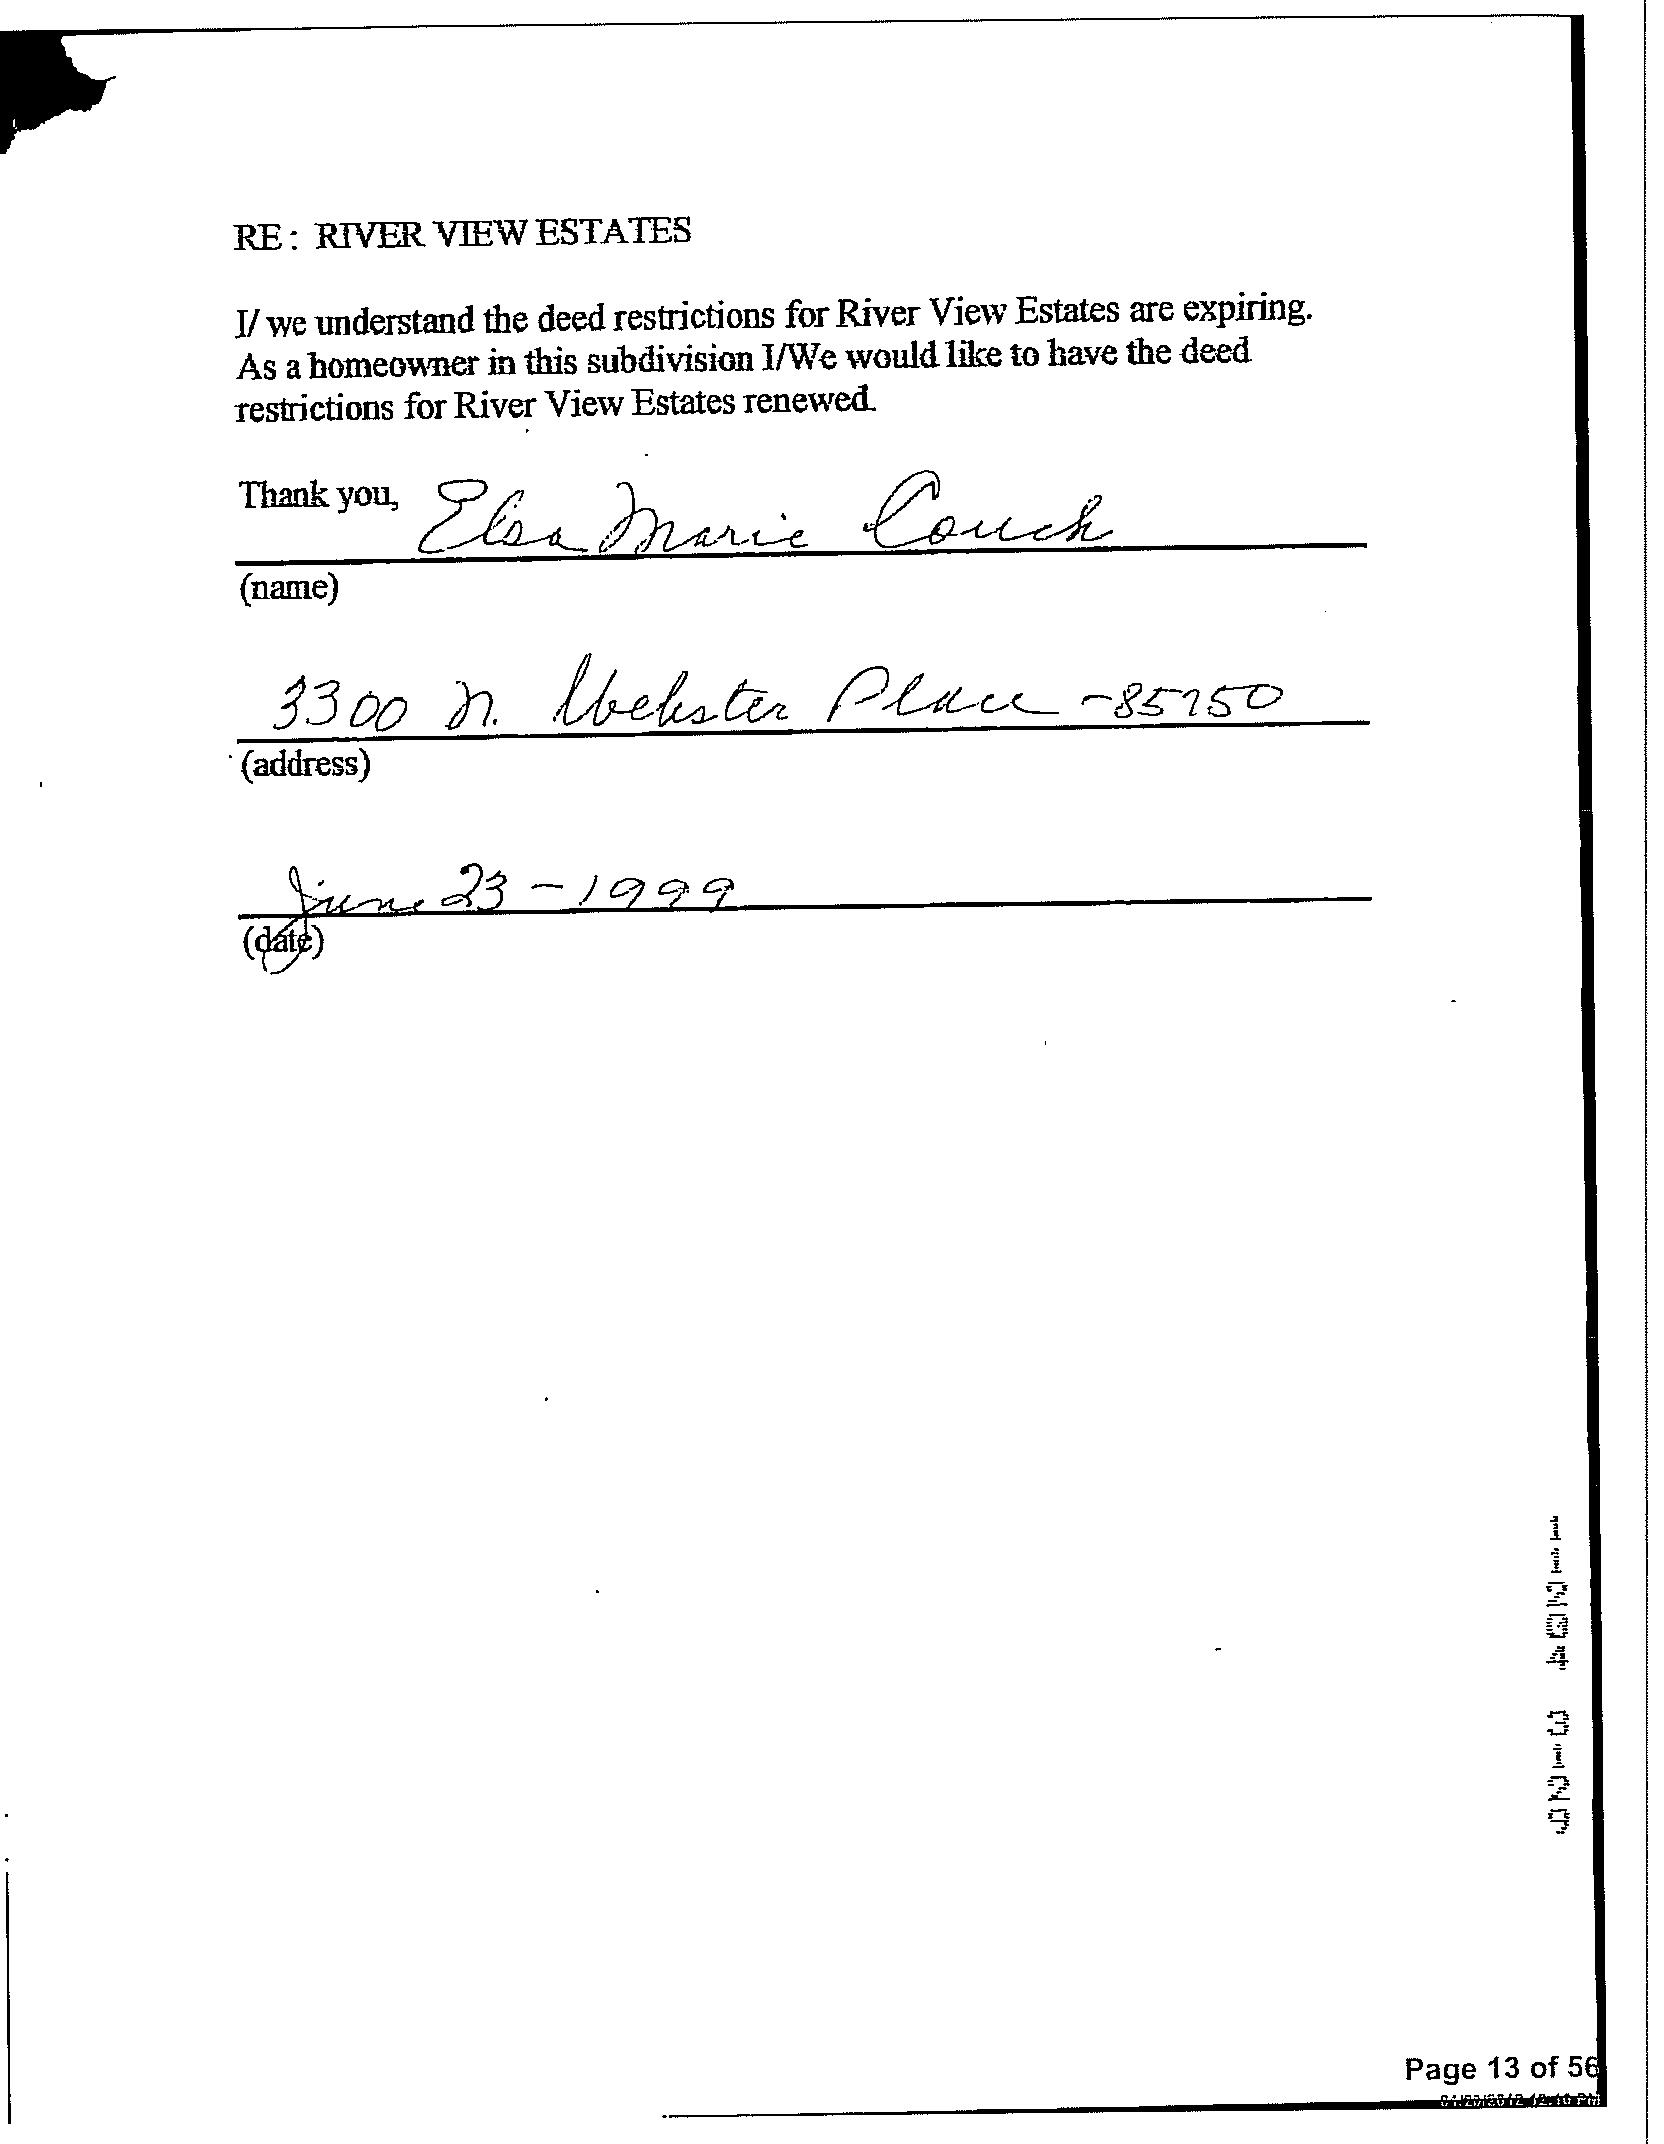 RE: RIVER VIEW ESTATES
I/ we understand the deed restrictions for River View Estates are expiring.
As a homeowner in this subdivision I/We would like to have the deed
restrictions for River View Estates renewed.
Thank you, Elsa Marie Couch
(name)
3300 N. Webster Place -85750
(address)
June 23-1999
(date)
Page 13 of 56